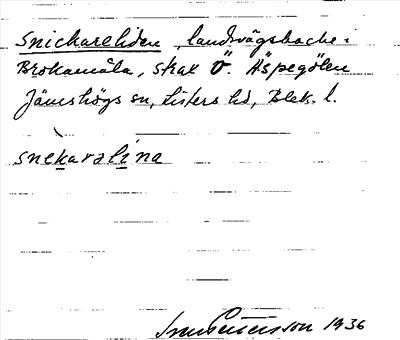 Snickareliden, landsvägsbacke i
Brokamåla, skat Ö. Äspegölen
Jämshögs sn, Listers hd, Blek. l.
snekaralina
1936